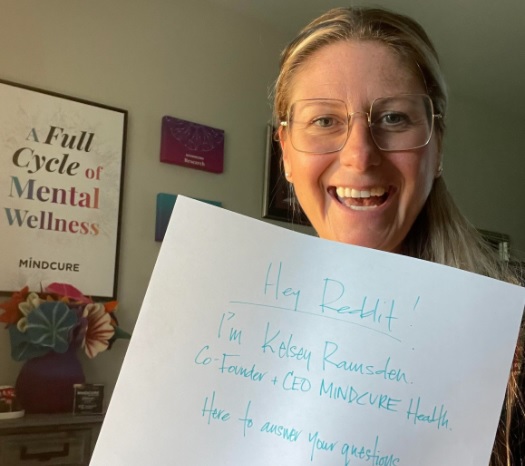 A Full
Cycle of
Mental
Wellness
MINDCURE
Research
Hey Reddit!
I'm Kelsey Ramsden.
Co-Founder + CEO MINDCURE Health.
Here to answer your questions